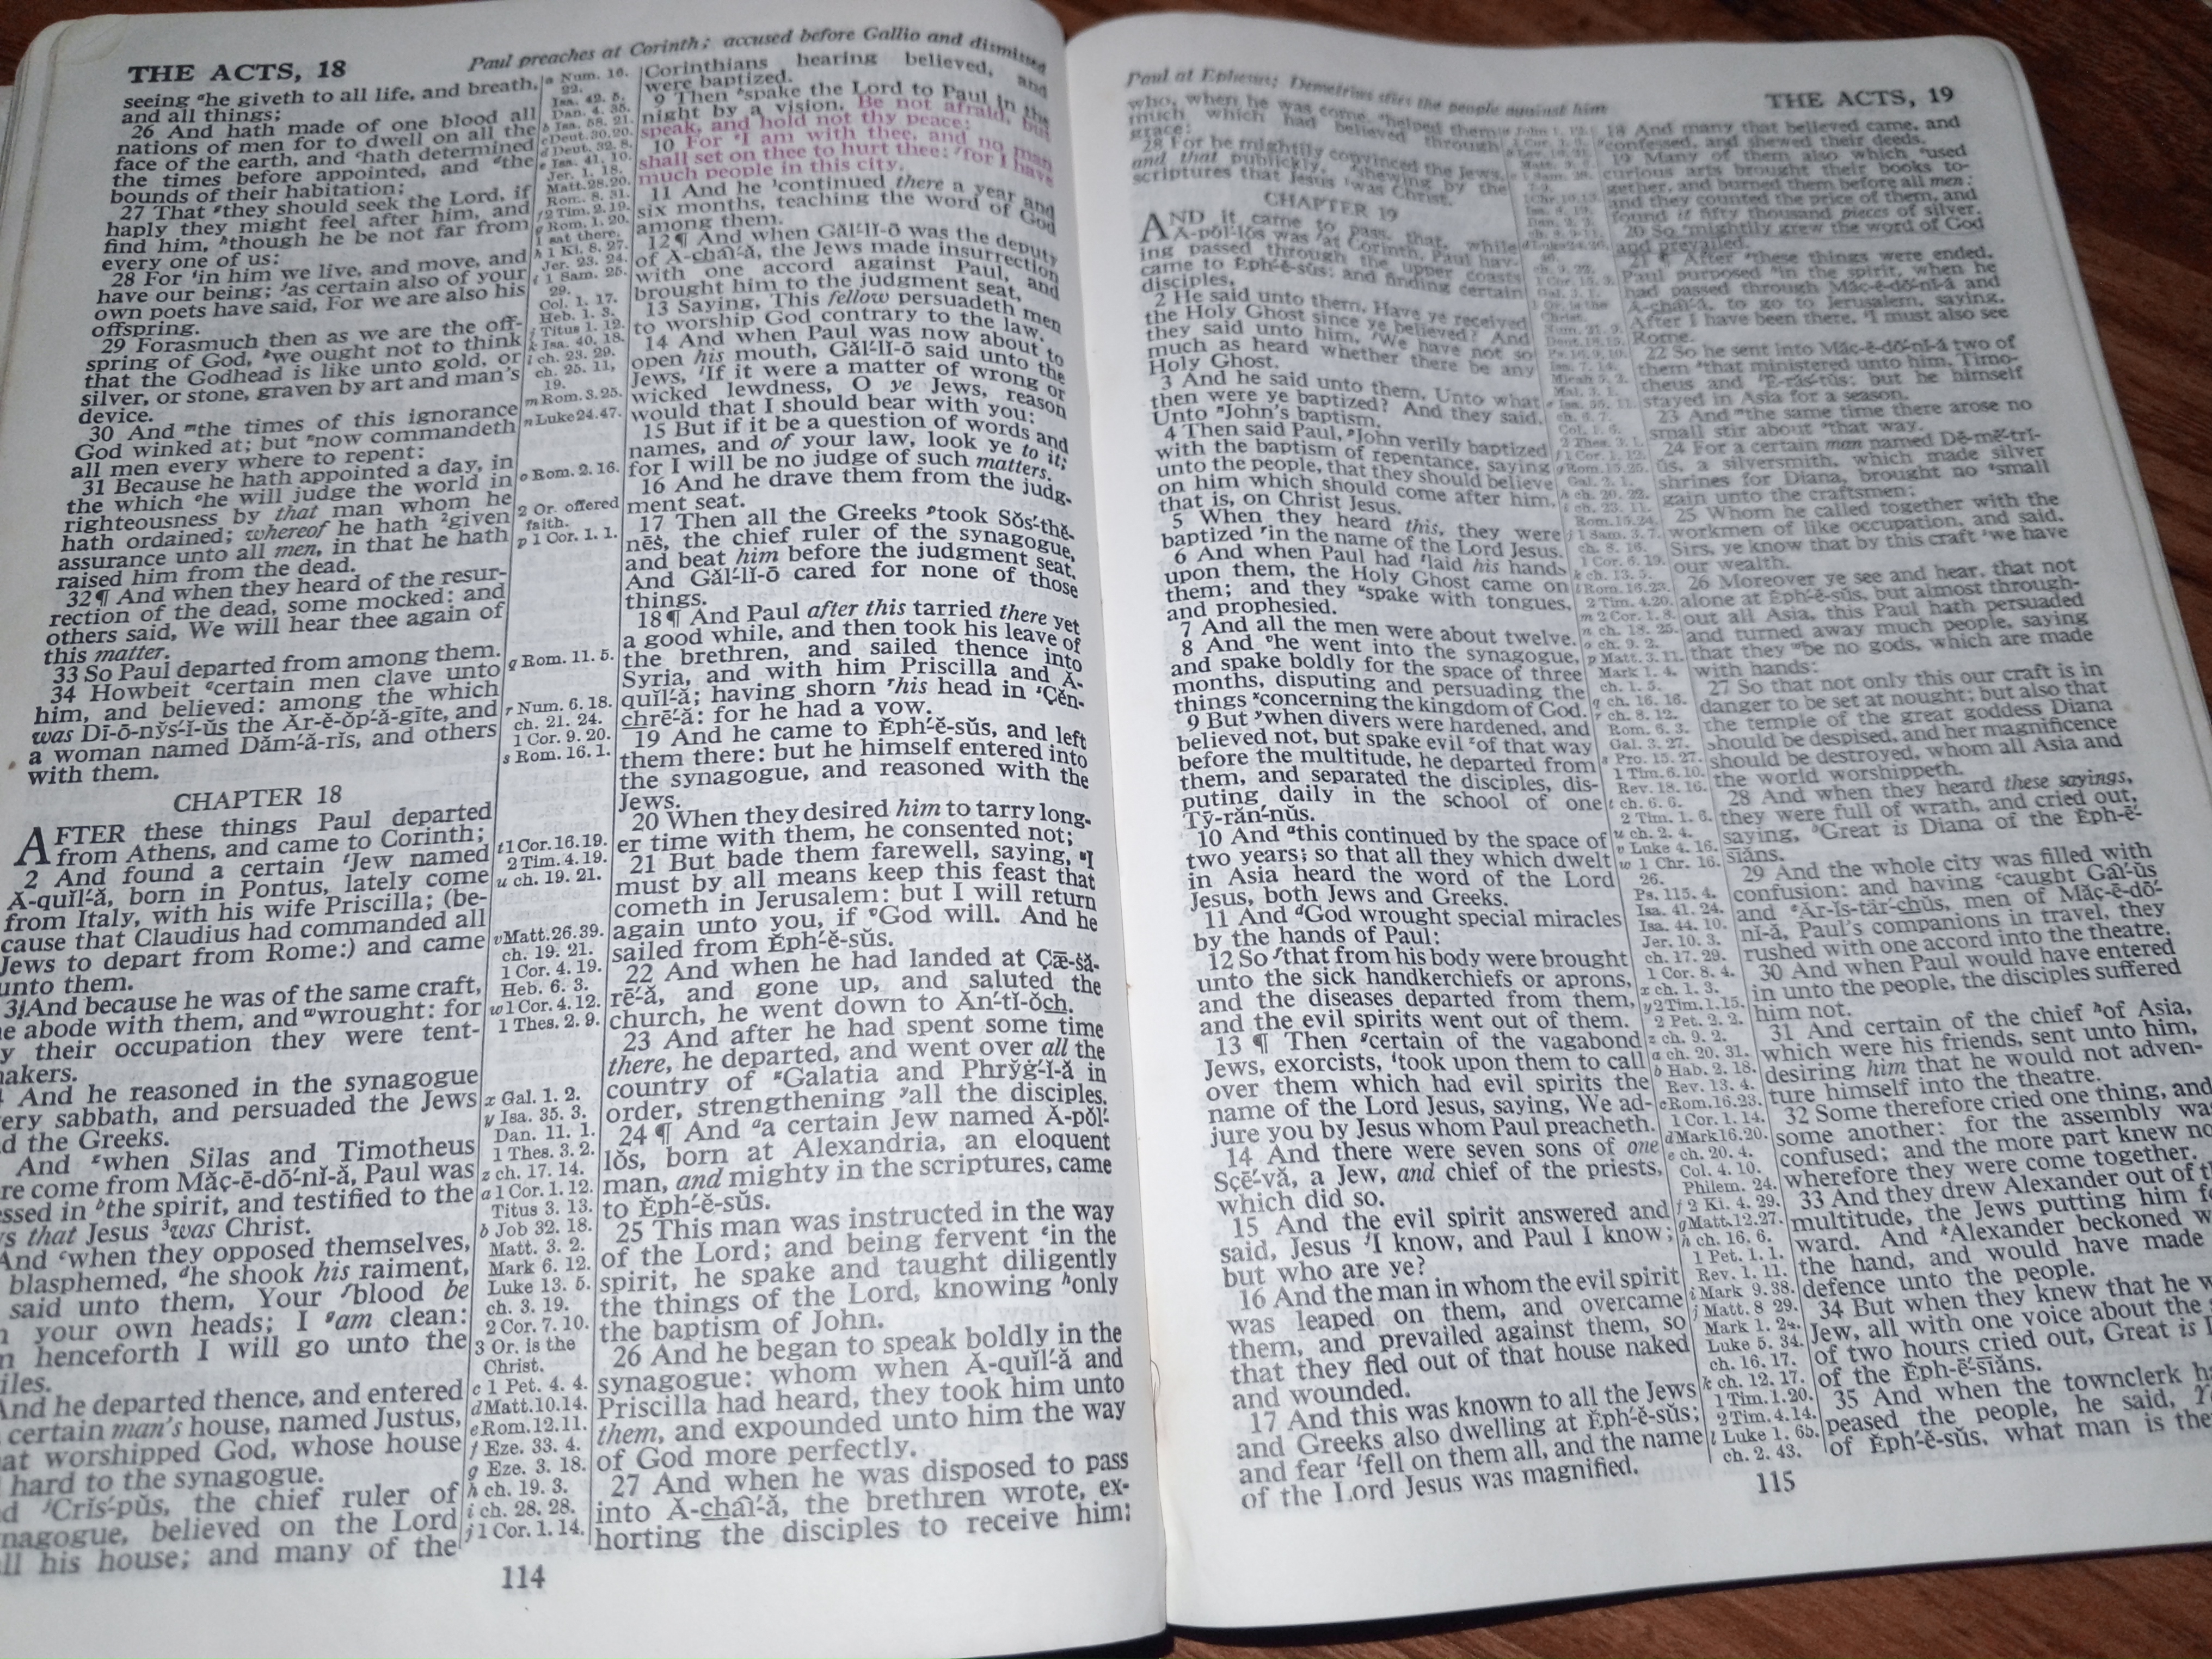 THE ACTS, 18
Paul preaches at Corinth; accused before Gallio and dismissed
seeing ᵃhe giveth to all life, and breath,
and all things;
26 And hath made of one blood all
nations of men for to dwell on all the
face of the earth, and ᶜhath determined
the times before appointed, and ᵈthe
bounds of their habitation;
27 That ᵉthey should seek the Lord, if
haply they might feel after him, and
find him, ʰthough he be not far from
every one of us:
28 For ⁱin him we live, and move, and
have our being; ʲas certain also of your
own poets have said, For we are also his
offspring.
29 Forasmuch then as we are the off-
spring of God, ᵏwe ought not to think
that the Godhead is like unto gold, or
silver, or stone, graven by art and man's
device.
30 And ᵐthe times of this ignorance
God winked at; but ⁿnow commandeth
all men every where to repent:
31 Because he hath appointed a day, in
the which ᵒhe will judge the world in
righteousness by that man whom he
hath ordained; whereof he hath ²given
assurance unto all men, in that he hath
raised him from the dead.
32 ¶ And when they heard of the resur-
rection of the dead, some mocked: and
others said, We will hear thee again of
this matter.
33 So Paul departed from among them.
34 Howbeit ᵍcertain men clave unto
him, and believed: among the which
was Dī-ō-nўs′-ĭ-ŭs the Ăr-ĕ-ŏp′-ă-gīte, and
a woman named Dăm′-ă-rĭs, and others
with them.
CHAPTER 18
AFTER these things Paul departed
from Athens, and came to Corinth;
2 And found a certain ᵗJew named
Ă-quĭl′-ă, born in Pontus, lately come
from Italy, with his wife Priscilla; (be-
cause that Claudius had commanded all
Jews to depart from Rome:) and came
unto them.
3 And because he was of the same craft,
he abode with them, and ʷwrought: for
y their occupation they were tent-
akers.
And he reasoned in the synagogue
ery sabbath, and persuaded the Jews
d the Greeks.
And ᶻwhen Silas and Timotheus
re come from Măç-ē-dō′-nĭ-ă, Paul was
ssed in ᵇthe spirit, and testified to the
s that Jesus ³was Christ.
And ᶜwhen they opposed themselves,
blasphemed, ᵈhe shook his raiment,
said unto them, Your ᶠblood be
your own heads; I ᵍam clean:
henceforth I will go unto the
iles.
And he departed thence, and entered
certain man's house, named Justus,
at worshipped God, whose house
hard to the synagogue.
d ʲCrĭs′-pŭs, the chief ruler of
nagogue, believed on the Lord
ll his house; and many of the
a Num. 16.
22.
Isa. 42. 5.
Dan. 4. 35.
b Isa. 58. 21.
c Deut. 30. 20.
d Deut. 32. 8.
e Isa. 41. 10.
Jer. 1. 18.
Matt. 28. 20.
Rom. 8. 31.
f 2 Tim. 2. 19.
g Rom. 1. 20.
1 sat there.
h 1 Ki. 8. 27.
Jer. 23. 24.
i 1 Sam. 25.
29.
Col. 1. 17.
Heb. 1. 3.
j Titus 1. 12.
k Isa. 40. 18.
l ch. 23. 29.
ch. 25. 11,
19.
m Rom. 3. 25.
n Luke 24. 47.
o Rom. 2. 16.
2 Or. offered
faith.
p 1 Cor. 1. 1.
q Rom. 11. 5.
r Num. 6. 18.
ch. 21. 24.
1 Cor. 9. 20.
s Rom. 16. 1.
t 1 Cor. 16. 19.
2 Tim. 4. 19.
u ch. 19. 21.
v Matt. 26. 39.
ch. 19. 21.
1 Cor. 4. 19.
Heb. 6. 3.
w 1 Cor. 4. 12.
1 Thes. 2. 9.
x Gal. 1. 2.
y Isa. 35. 3.
Dan. 11. 1.
1 Thes. 3. 2.
z ch. 17. 14.
a 1 Cor. 1. 12.
Titus 3. 13.
b Job 32. 18.
Matt. 3. 2.
Mark 6. 12.
Luke 13. 5.
ch. 3. 19.
2 Cor. 7. 10.
3 Or. is the
Christ.
c 1 Pet. 4. 4.
d Matt. 10. 14.
e Rom. 12. 11.
f Eze. 33. 4.
g Eze. 3. 18.
h ch. 19. 3.
i ch. 28. 28.
j 1 Cor. 1. 14.
Corinthians hearing believed, and
were baptized.
9 Then ᵇspake the Lord to Paul in the
night by a vision, Be not afraid, but
speak, and hold not thy peace:
10 For ᵉI am with thee, and no man
shall set on thee to hurt thee: ᶠfor I have
much people in this city.
11 And he ¹continued there a year and
six months, teaching the word of God
among them.
12 ¶ And when Găl′-lĭ-ō was the deputy
of Ă-chāî′-ă, the Jews made insurrection
with one accord against Paul, and
brought him to the judgment seat,
13 Saying, This fellow persuadeth men
to worship God contrary to the law.
14 And when Paul was now about to
open his mouth, Găl′-lĭ-ō said unto the
Jews, ˡIf it were a matter of wrong or
wicked lewdness, O ye Jews, reason
would that I should bear with you:
15 But if it be a question of words and
names, and of your law, look ye to it;
for I will be no judge of such matters.
16 And he drave them from the judg-
ment seat.
17 Then all the Greeks ᵖtook Sŏs′-thĕ-
nēs, the chief ruler of the synagogue,
and beat him before the judgment seat.
And Găl′-lĭ-ō cared for none of those
things.
18 ¶ And Paul after this tarried there yet
a good while, and then took his leave of
the brethren, and sailed thence into
Syria, and with him Priscilla and Ă-
quĭl′-ă; having shorn ʳhis head in ˢÇĕn-
chrē′-ă: for he had a vow.
19 And he came to Ĕph′-ĕ-sŭs, and left
them there: but he himself entered into
the synagogue, and reasoned with the
Jews.
20 When they desired him to tarry long-
er time with them, he consented not;
21 But bade them farewell, saying, ᵘI
must by all means keep this feast that
cometh in Jerusalem: but I will return
again unto you, if ᵛGod will. And he
sailed from Ĕph′-ĕ-sŭs.
22 And when he had landed at Çæ-să-
rē′-ă, and gone up, and saluted the
church, he went down to Ăn′-tĭ-ŏch.
23 And after he had spent some time
there, he departed, and went over all the
country of ˣGalatia and Phrўġ′-ĭ-ă in
order, strengthening ʸall the disciples.
24 ¶ And ᵃa certain Jew named Ă-pŏl′-
lŏs, born at Alexandria, an eloquent
man, and mighty in the scriptures, came
to Ĕph′-ĕ-sŭs.
25 This man was instructed in the way
of the Lord; and being fervent ᵉin the
spirit, he spake and taught diligently
the things of the Lord, knowing ʰonly
the baptism of John.
26 And he began to speak boldly in the
synagogue: whom when Ă-quĭl′-ă and
Priscilla had heard, they took him unto
them, and expounded unto him the way
of God more perfectly.
27 And when he was disposed to pass
into Ă-chāî′-ă, the brethren wrote, ex-
horting the disciples to receive him:
114
Paul at Ephesus; Demetrius stirs the people against him
THE ACTS, 19
who, when he was come, ᵃhelped them
much which had believed through
grace:
28 For he mightily convinced the Jews,
and that publickly, shewing by the
scriptures that Jesus was Christ.
CHAPTER 19
AND it came to pass, that, while
Ă-pŏl′-lŏs was at Corinth, Paul hav-
ing passed through the upper coasts
came to Ĕph′-ĕ-sŭs: and finding certain
disciples,
2 He said unto them, Have ye received
the Holy Ghost since ye believed? And
they said unto him, We have not so
much as heard whether there be any
Holy Ghost.
3 And he said unto them, Unto what
then were ye baptized? And they said,
Unto ⁿJohn's baptism.
4 Then said Paul, ᵖJohn verily baptized
with the baptism of repentance, saying
unto the people, that they should believe
on him which should come after him,
that is, on Christ Jesus.
5 When they heard this, they were
baptized ʳin the name of the Lord Jesus.
6 And when Paul had ᵗlaid his hands
upon them, the Holy Ghost came on
them; and they ᵘspake with tongues,
and prophesied.
7 And all the men were about twelve.
8 And ᵒhe went into the synagogue,
and spake boldly for the space of three
months, disputing and persuading the
things ˣconcerning the kingdom of God.
9 But ʸwhen divers were hardened, and
believed not, but spake evil ᶻof that way
before the multitude, he departed from
them, and separated the disciples, dis-
puting daily in the school of one
Tў-răn′-nŭs.
10 And ᵃthis continued by the space of
two years; so that all they which dwelt
in Asia heard the word of the Lord
Jesus, both Jews and Greeks.
11 And ᵈGod wrought special miracles
by the hands of Paul:
12 So ᶠthat from his body were brought
unto the sick handkerchiefs or aprons,
and the diseases departed from them,
and the evil spirits went out of them.
13 ¶ Then ᵍcertain of the vagabond
Jews, exorcists, ⁱtook upon them to call
over them which had evil spirits the
name of the Lord Jesus, saying, We ad-
jure you by Jesus whom Paul preacheth.
14 And there were seven sons of one
Sçē′-vă, a Jew, and chief of the priests,
which did so.
15 And the evil spirit answered and
said, Jesus ʲI know, and Paul I know;
but who are ye?
16 And the man in whom the evil spirit
was leaped on them, and overcame
them, and prevailed against them, so
that they fled out of that house naked
and wounded.
17 And this was known to all the Jews
and Greeks also dwelling at Ĕph′-ĕ-sŭs;
and fear ˡfell on them all, and the name
of the Lord Jesus was magnified.
ch. 20. 22.
ch. 23. 11.
Rom. 15. 24.
j 1 Sam. 3. 7.
ch. 8. 16.
1 Cor. 6. 19.
k ch. 13. 5.
l Rom. 16. 23.
2 Tim. 4. 20.
m 2 Cor. 1. 8.
n ch. 18. 25.
o ch. 9. 2.
p Matt. 3. 11.
Mark 1. 4.
ch. 1. 5.
q ch. 16. 16.
r ch. 8. 12.
Rom. 6. 3.
Gal. 3. 27.
s Pro. 15. 27.
1 Tim. 6. 10.
Rev. 18. 16.
t ch. 6. 6.
2 Tim. 1. 6.
u ch. 2. 4.
v Luke 4. 16.
w 1 Chr. 16.
26.
Ps. 115. 4.
Isa. 41. 24.
Isa. 44. 10.
Jer. 10. 3.
ch. 17. 29.
1 Cor. 8. 4.
x ch. 1. 3.
y 2 Tim. 1. 15.
2 Pet. 2. 2.
z ch. 9. 2.
a ch. 20. 31.
b Hab. 2. 18.
Rev. 13. 4.
c Rom. 16. 23.
1 Cor. 1. 14.
d Mark 16. 20.
e ch. 20. 4.
Col. 4. 10.
Philem. 24.
f 2 Ki. 4. 29.
g Matt. 12. 27.
h ch. 16. 6.
1 Pet. 1. 1.
Rev. 1. 11.
i Mark 9. 38.
j Matt. 8 29.
Mark 1. 24.
Luke 5. 34.
ch. 16. 17.
k ch. 12. 17.
1 Tim. 1. 20.
2 Tim. 4. 14.
l Luke 1. 65.
ch. 2. 43.
18 And many that believed came, and
confessed, and shewed their deeds.
19 Many of them also which used
curious arts brought their books to-
gether, and burned them before all men:
and they counted the price of them, and
found it fifty thousand pieces of silver.
20 So mightily grew the word of God
and prevailed.
21 ¶ After these things were ended,
Paul purposed in the spirit, when he
had passed through Măç-ē-dō′-nĭ-ă and
Ă-chāî′-ă, to go to Jerusalem, saying,
After I have been there, I must also see
Rome.
22 So he sent into Măç-ē-dō′-nĭ-ă two of
them that ministered unto him, Timo-
theus and Ē-răs′-tŭs; but he himself
stayed in Asia for a season.
23 And ᵐthe same time there arose no
small stir about ᵒthat way.
24 For a certain man named Dē-mē′-trĭ-
ŭs, a silversmith, which made silver
shrines for Diana, brought no ᵍsmall
gain unto the craftsmen;
25 Whom he called together with the
workmen of like occupation, and said,
Sirs, ye know that by this craft ˢwe have
our wealth.
26 Moreover ye see and hear, that not
alone at Ĕph′-ĕ-sŭs, but almost through-
out all Asia, this Paul hath persuaded
and turned away much people, saying
that they ʷbe no gods, which are made
with hands:
27 So that not only this our craft is in
danger to be set at nought; but also that
the temple of the great goddess Diana
should be despised, and her magnificence
should be destroyed, whom all Asia and
the world worshippeth.
28 And when they heard these sayings,
they were full of wrath, and cried out,
saying, ᵇGreat is Diana of the Ĕph-ē′-
sĭăns.
29 And the whole city was filled with
confusion: and having ᶜcaught Gāî′-ŭs
and ᵉĂr-ĭs-tär′-chŭs, men of Măç-ē-dō′-
nĭ-ă, Paul's companions in travel, they
rushed with one accord into the theatre.
30 And when Paul would have entered
in unto the people, the disciples suffered
him not.
31 And certain of the chief ʰof Asia,
which were his friends, sent unto him,
desiring him that he would not adven-
ture himself into the theatre.
32 Some therefore cried one thing, and
some another: for the assembly wa
confused; and the more part knew no
wherefore they were come together.
33 And they drew Alexander out of t
multitude, the Jews putting him f
ward. And ᵏAlexander beckoned w
the hand, and would have made
defence unto the people.
34 But when they knew that he w
Jew, all with one voice about the
of two hours cried out, Great is
of the Ĕph-ē′-sĭăns.
35 And when the townclerk h
peased the people, he said,
of Ĕph′-ĕ-sŭs, what man is the
115